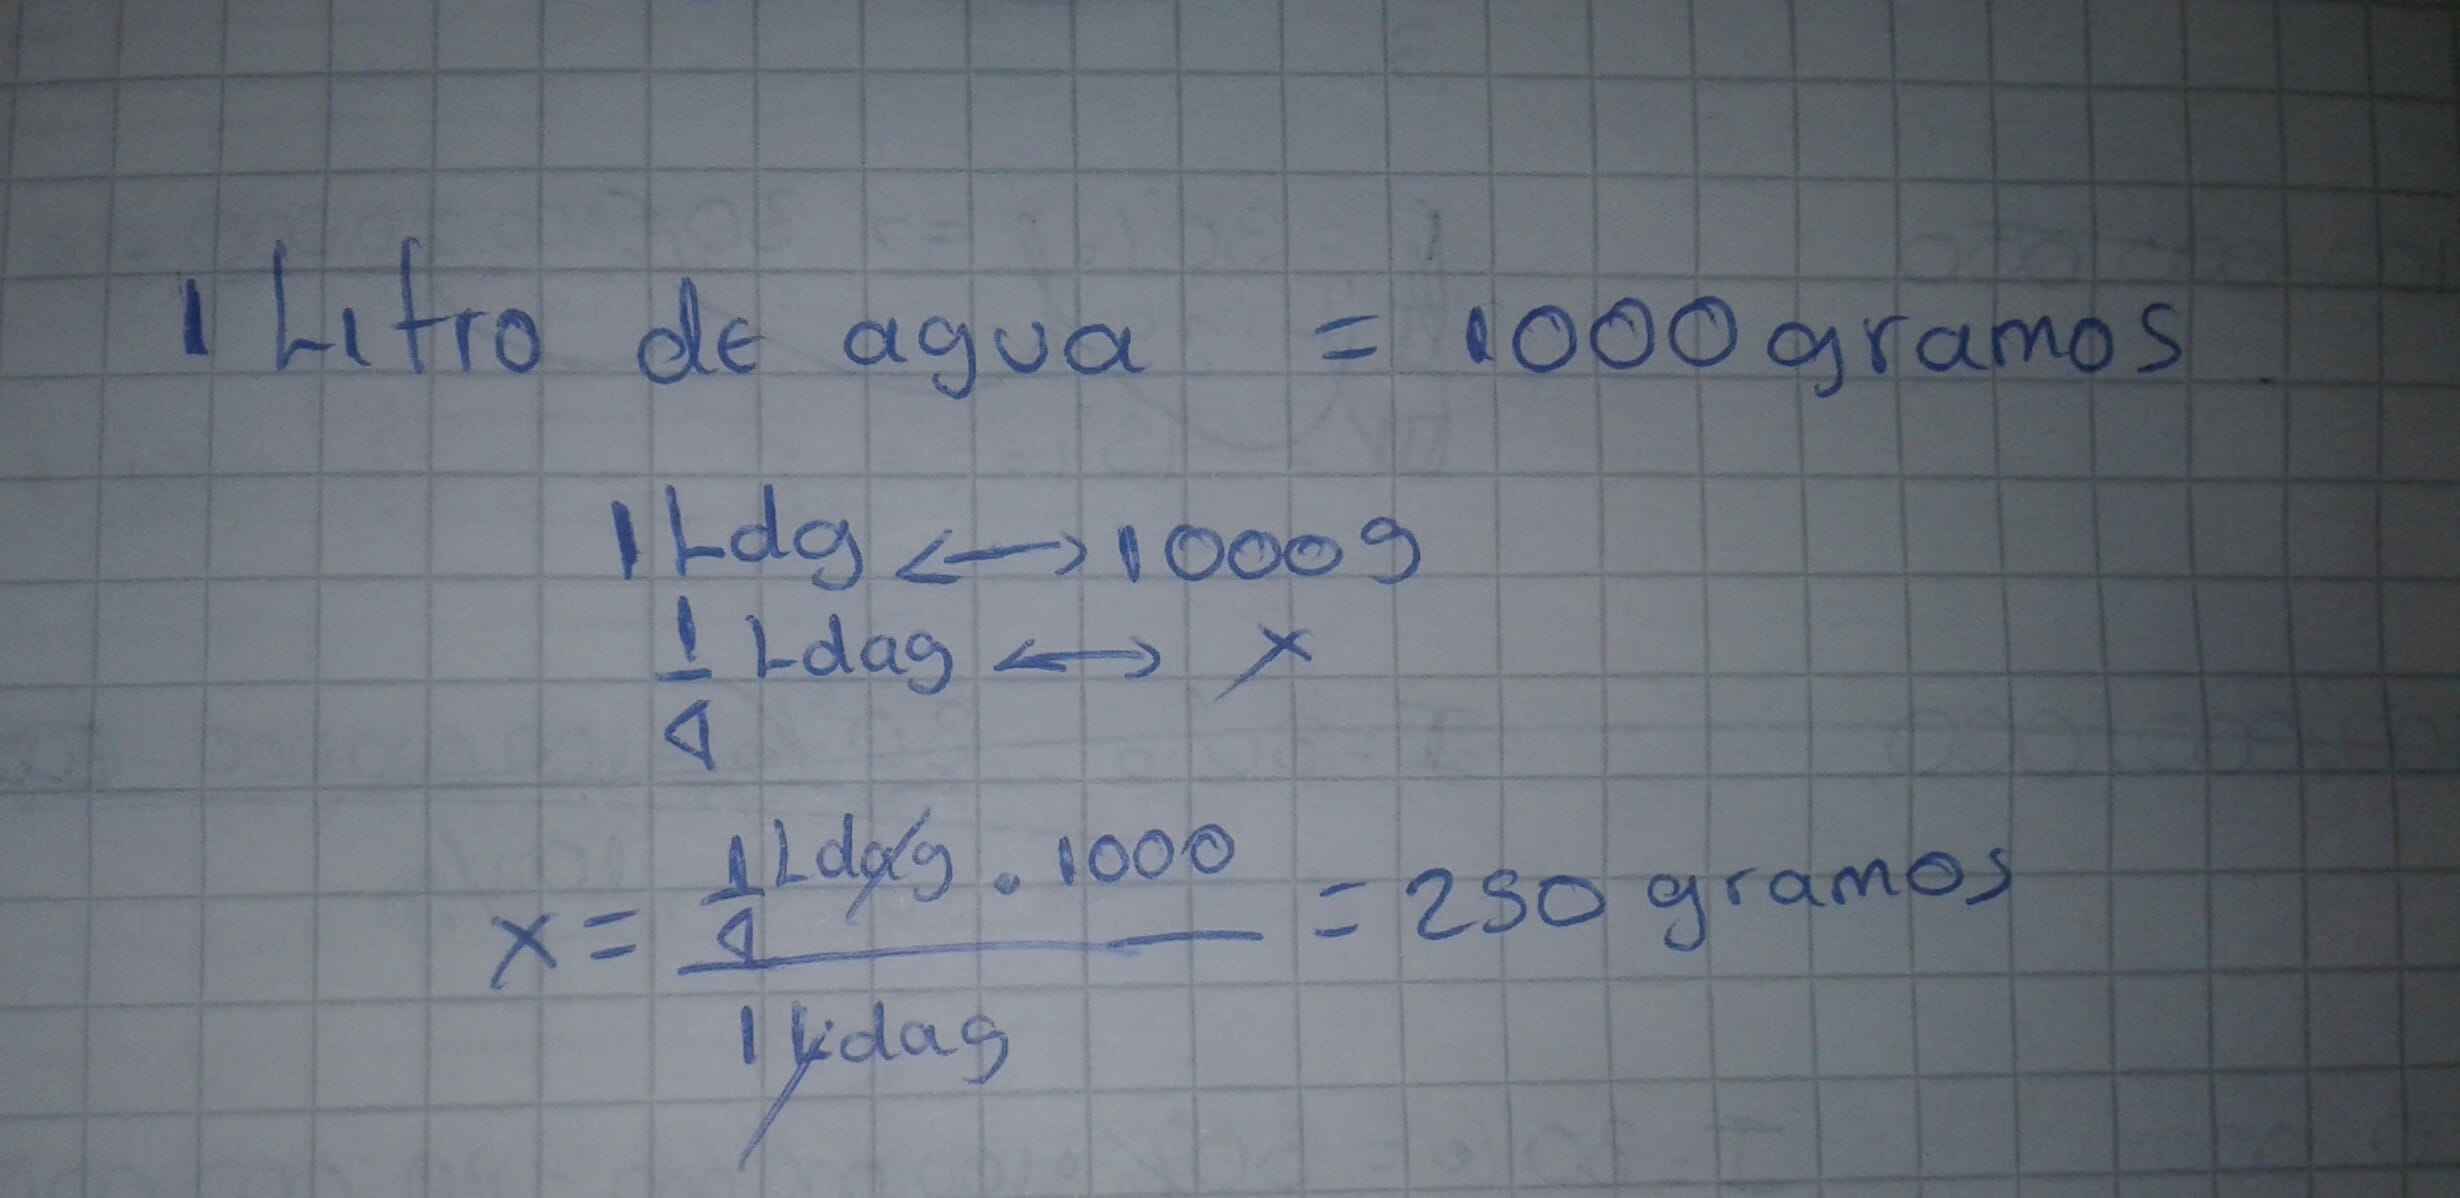 1 Litro de agua = 1000 gramos
1 Ldg <-> 1000g
1/4 Ldag <-> x
x = (1/4 Ldag . 1000) / (1 Ldag) = 250 gramos